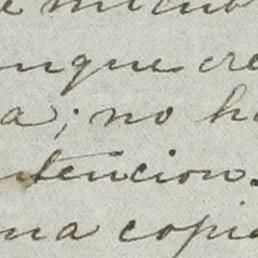 onque cre
a; no h
tencion.
na copia